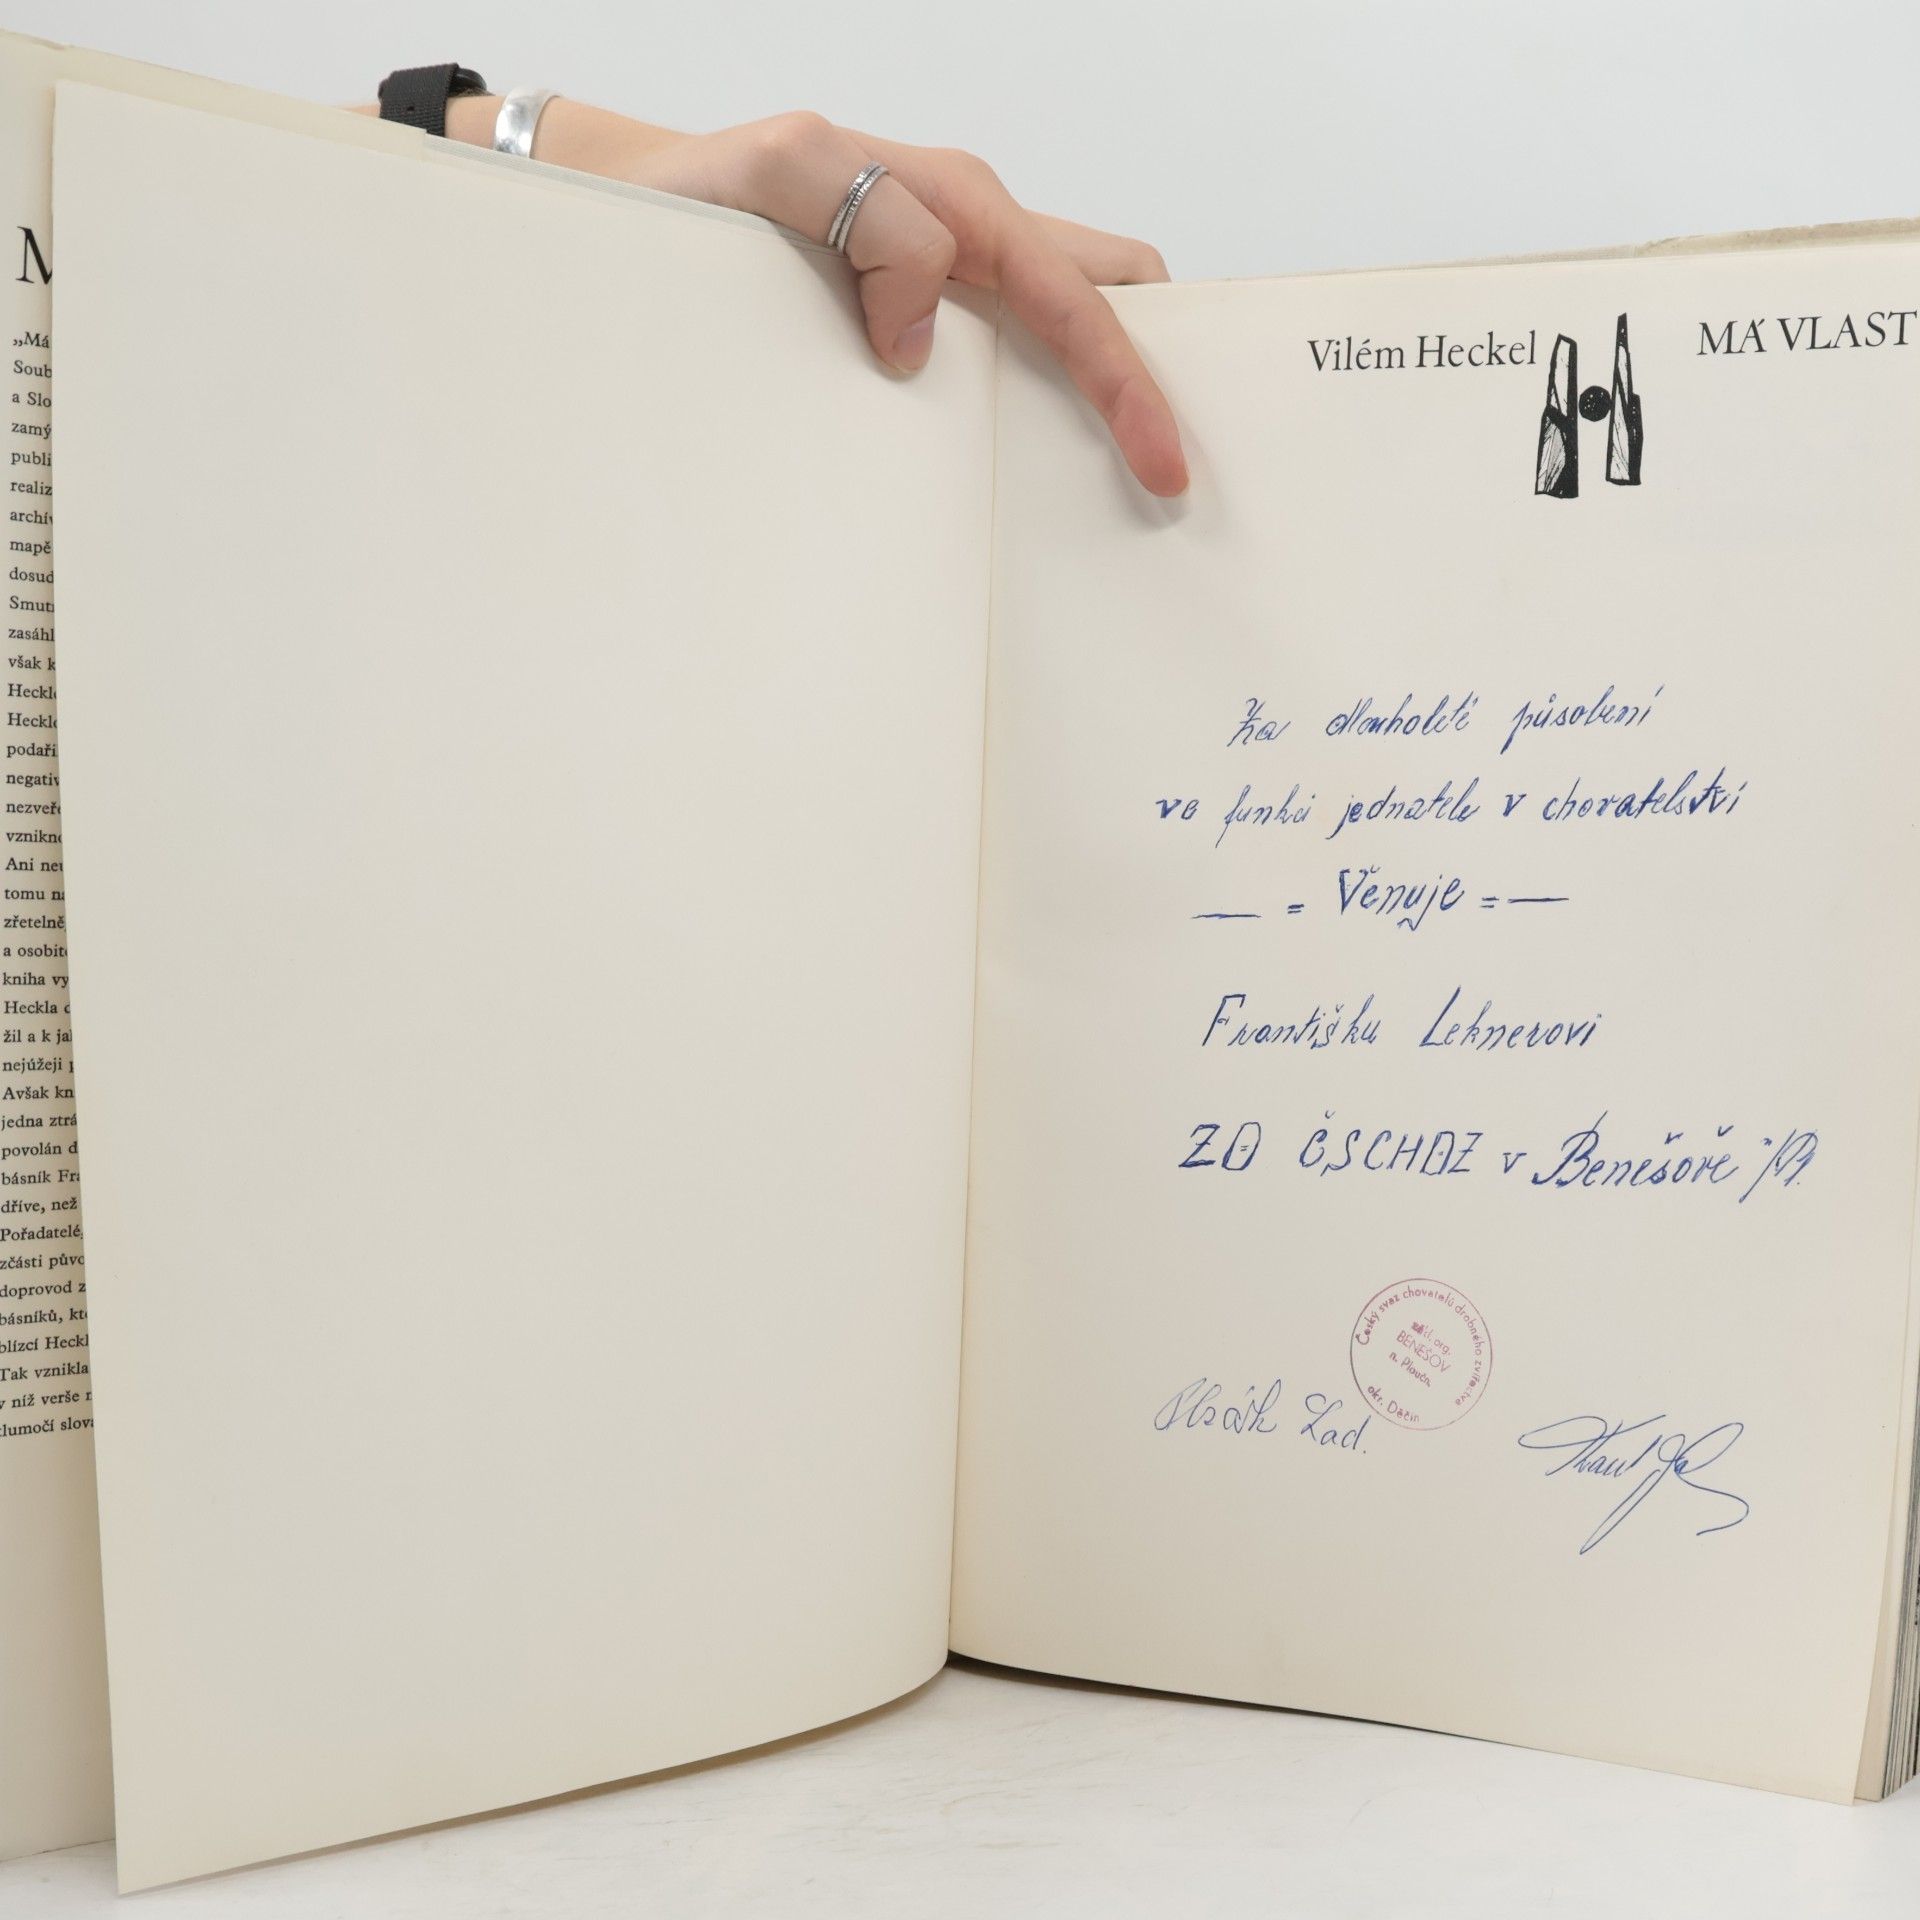 M
„Má
Soub
a Slo
zamý
publi
realiz
archív
mapě
dosud
Smutn
zasáhl
však k
Heckle
Heckle
podaři
negativ
nezveře
vznikn
Ani neu
tomu na
zřetelně
a osobit
kniha vy
Heckla d
žil a k jak
nejúžeji p
Avšak kn
jedna ztrá
povolán d
básník Fra
dříve, než
Pořadatelé,
zčásti půvo
doprovod z
básníků, kte
blízcí Heckl
Tak vznikla
v níž verše n
tlumočí slova
Vilém Heckel MÁ VLAST
Za dlouholeté působení
ve funkci jednatele v chovatelství
— = Věnuje = —
Františku Leknerovi
ZO ČSCHDZ v Benešově n/Pl.
Český svaz chovatelů drobného zvířectva
zákl. org.
BENEŠOV
n. Ploučn.
okr. Děčín
Lad.